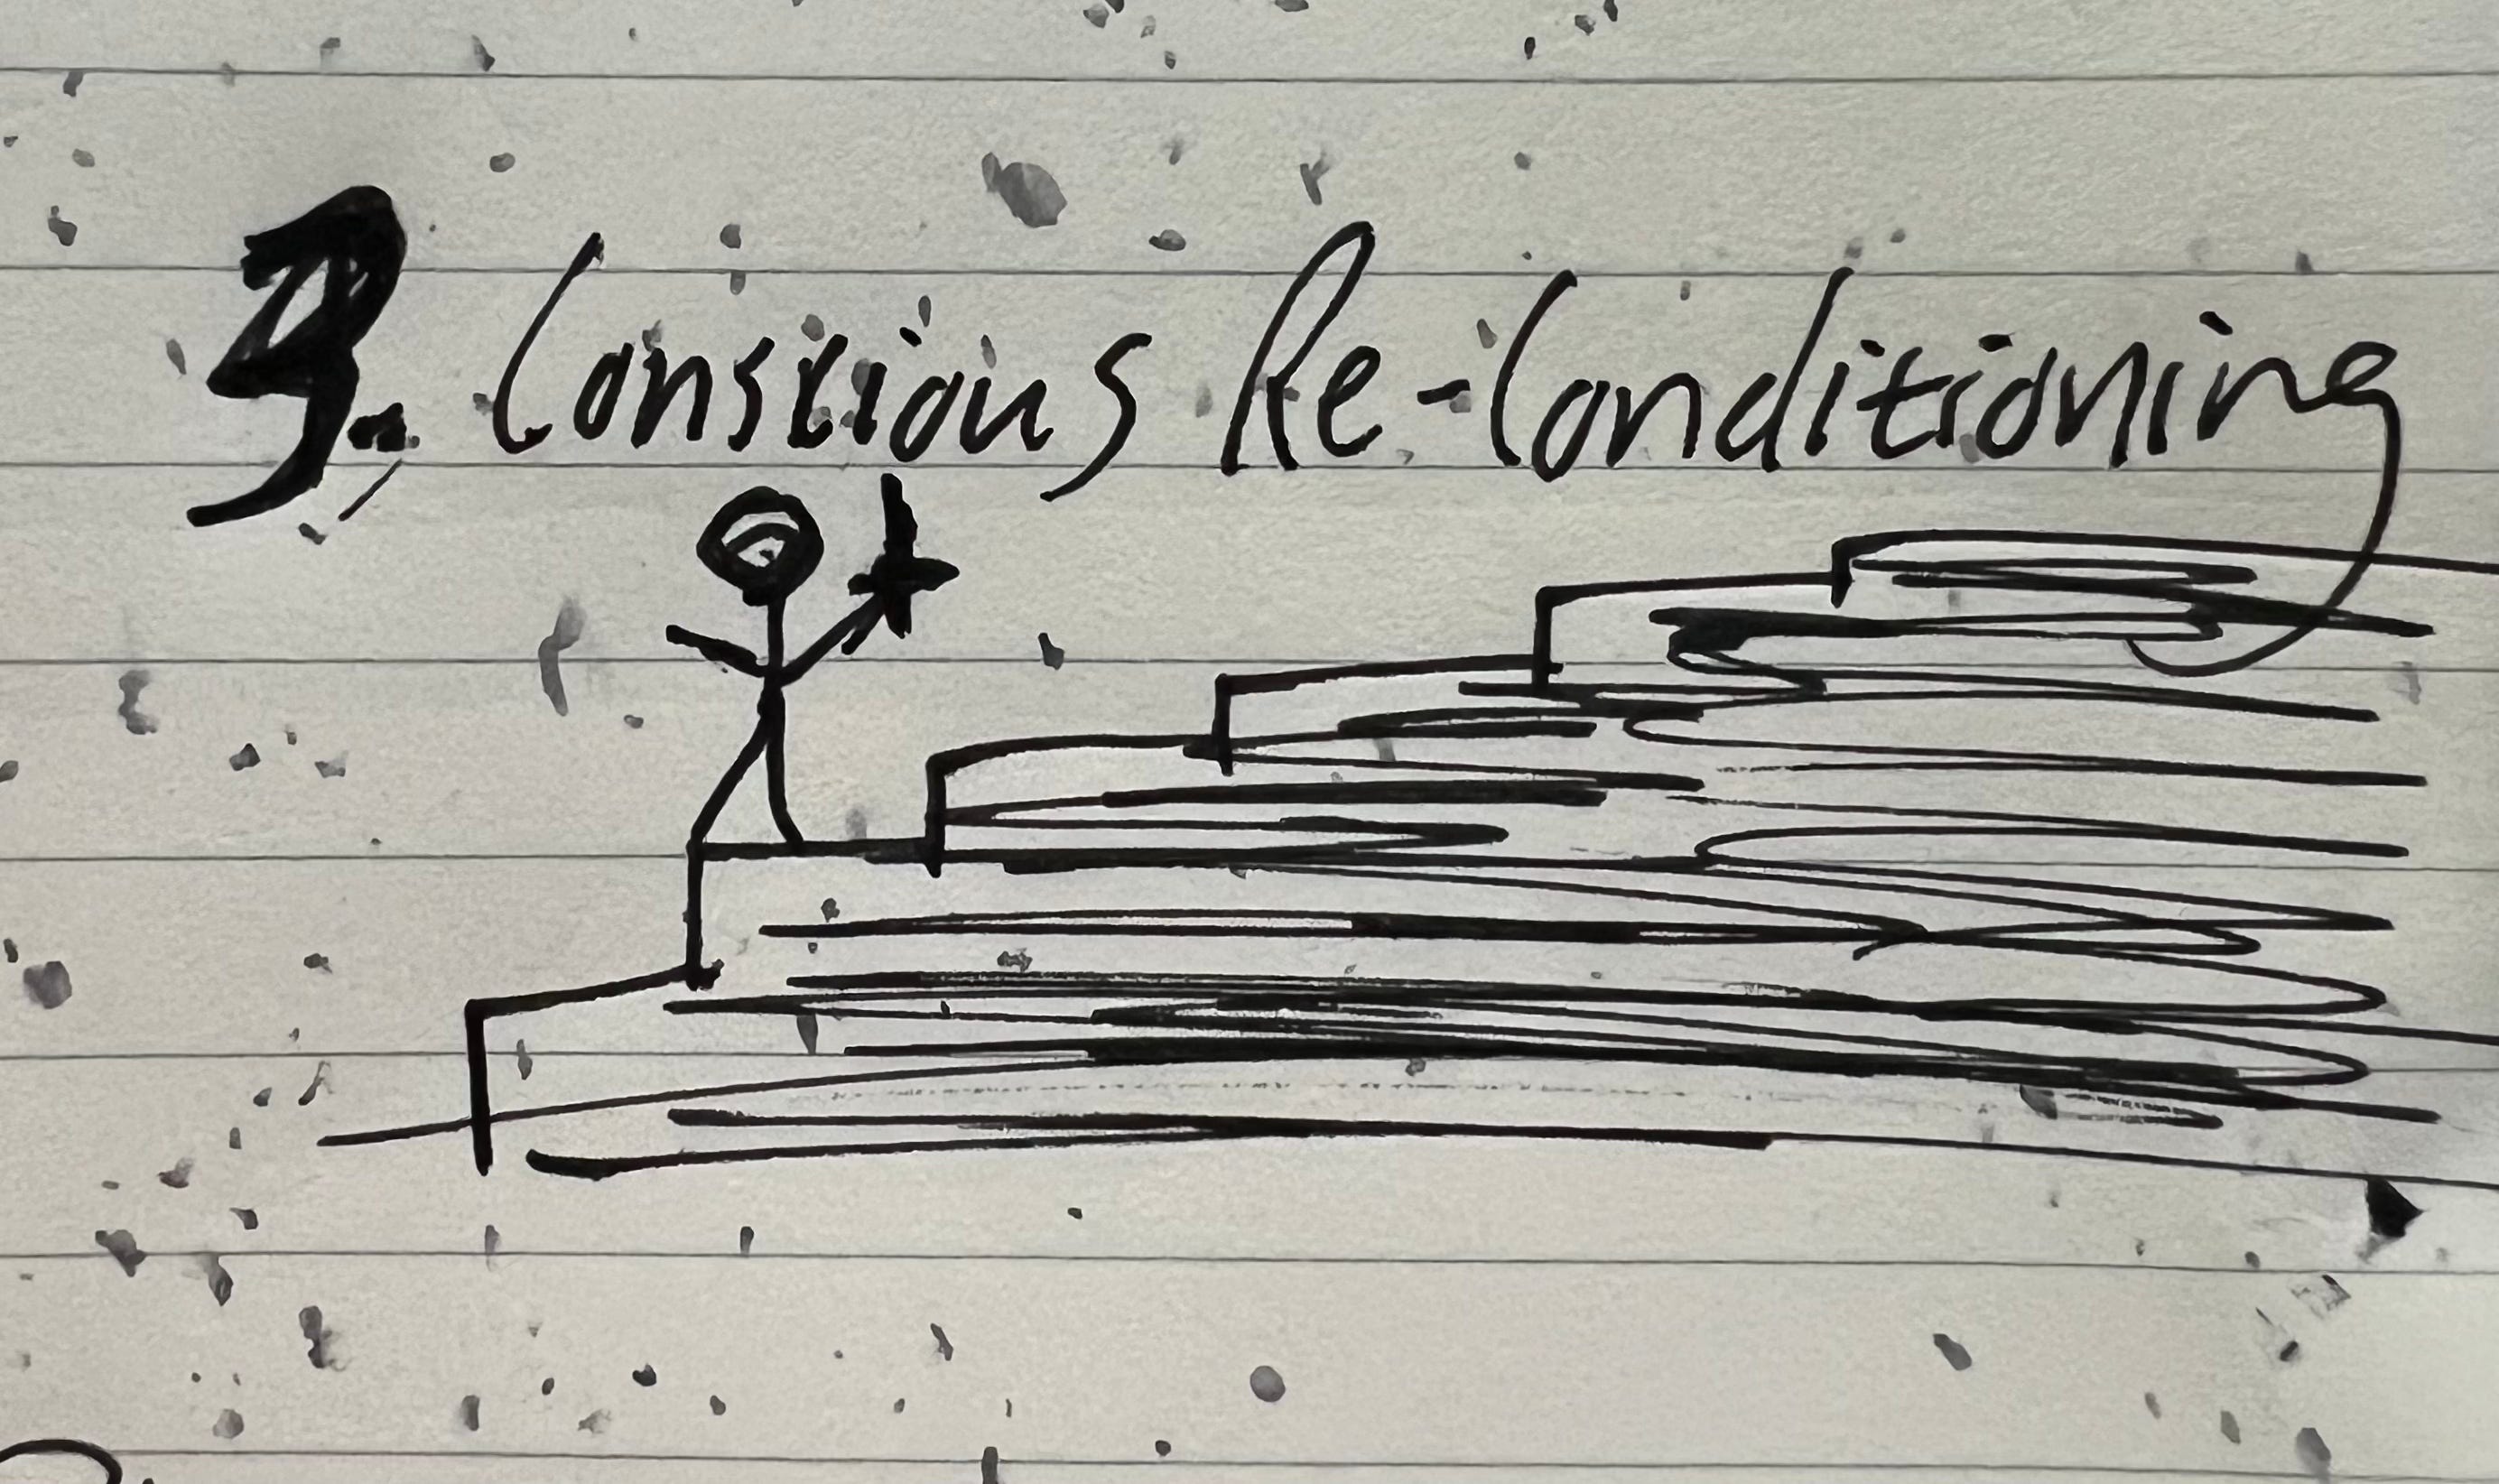 3. Conscious Re-Conditioning